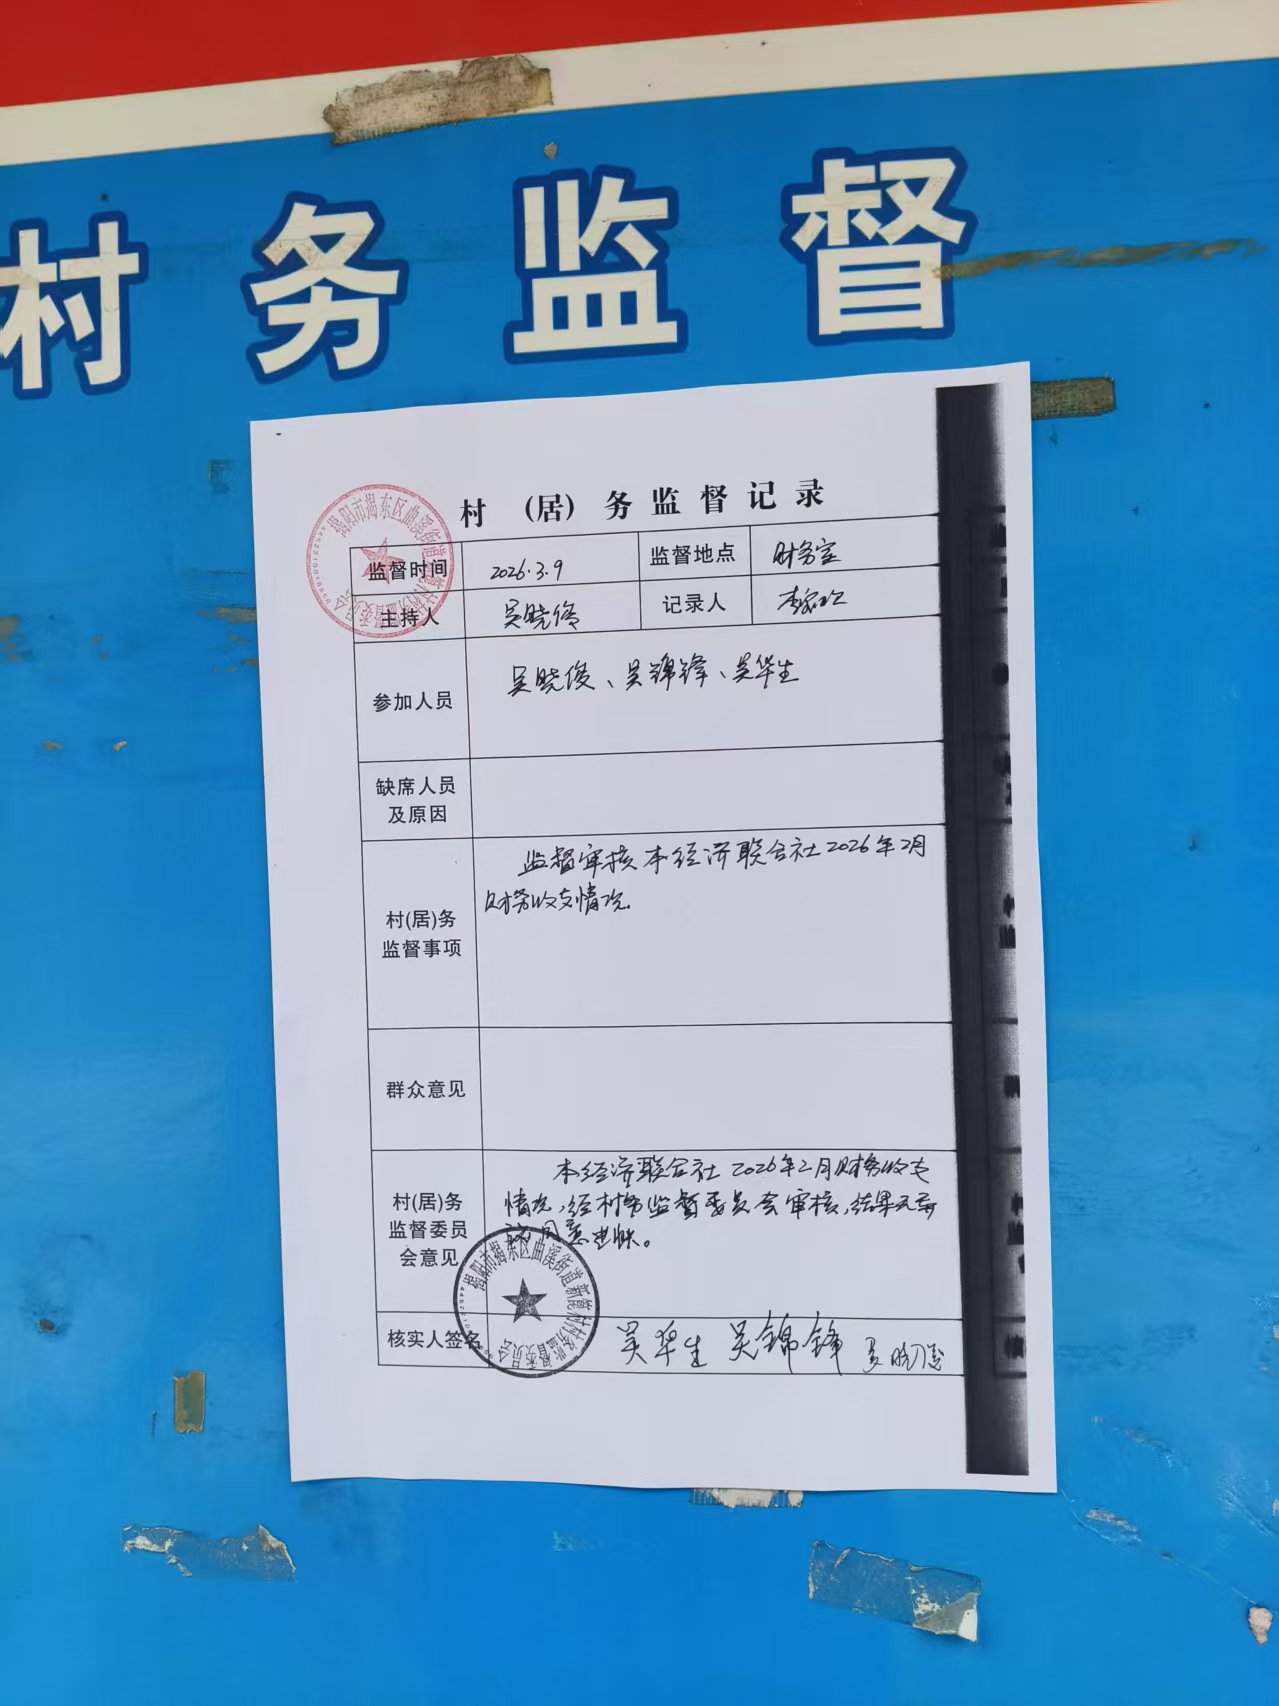 村务监督
村（居）务监督记录
监督时间 2026.3.9 监督地点 财务室
主持人 吴晓俊 记录人
参加人员 吴晓俊、吴锦锋、吴华生
缺席人员
及原因
监督审核本经济联合社2026年2月
财务收支情况.
村(居)务
监督事项
群众意见
本经济联合社2026年2月财务收支
情况,经村务监督委员会审核,结果无
同意
村(居)务
监督委员
会意见
核实人签名 吴华生 吴锦锋 吴晓俊
揭阳市揭东区曲溪街道
村村务监督委员会